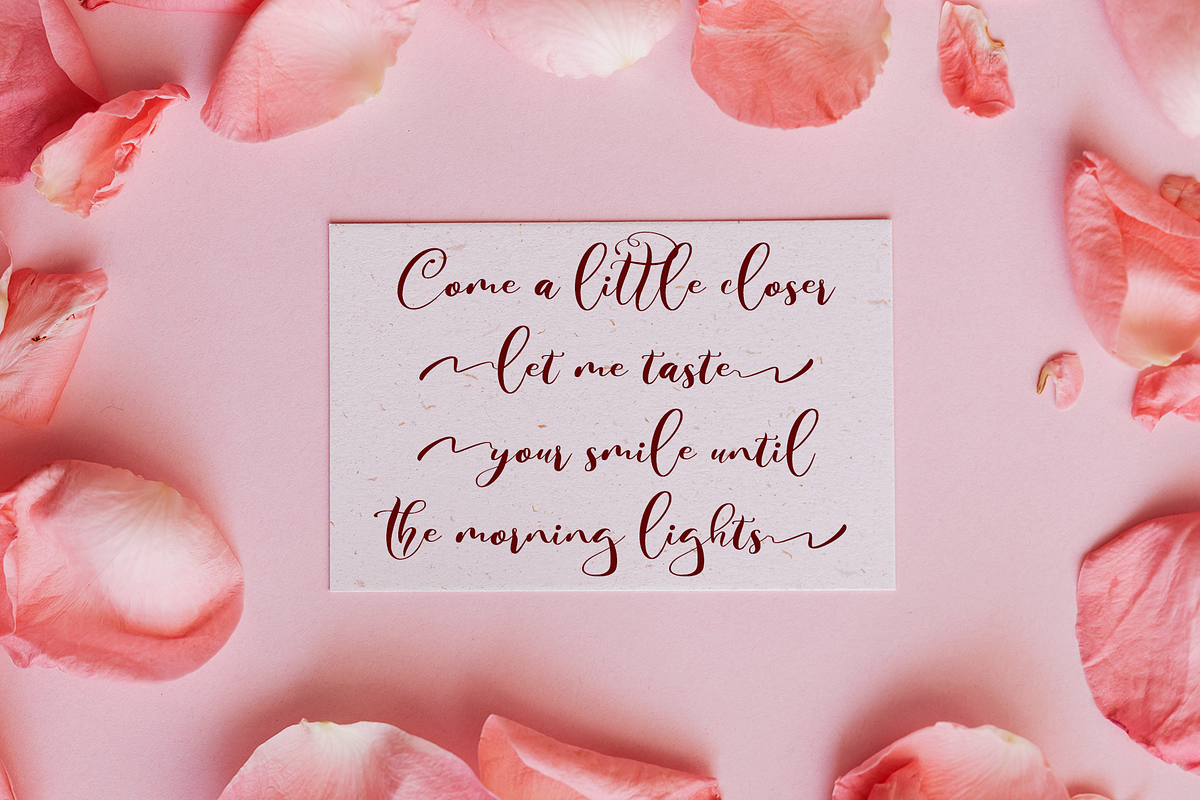 Come a little closer
let me taste
your smile until
the morning lights